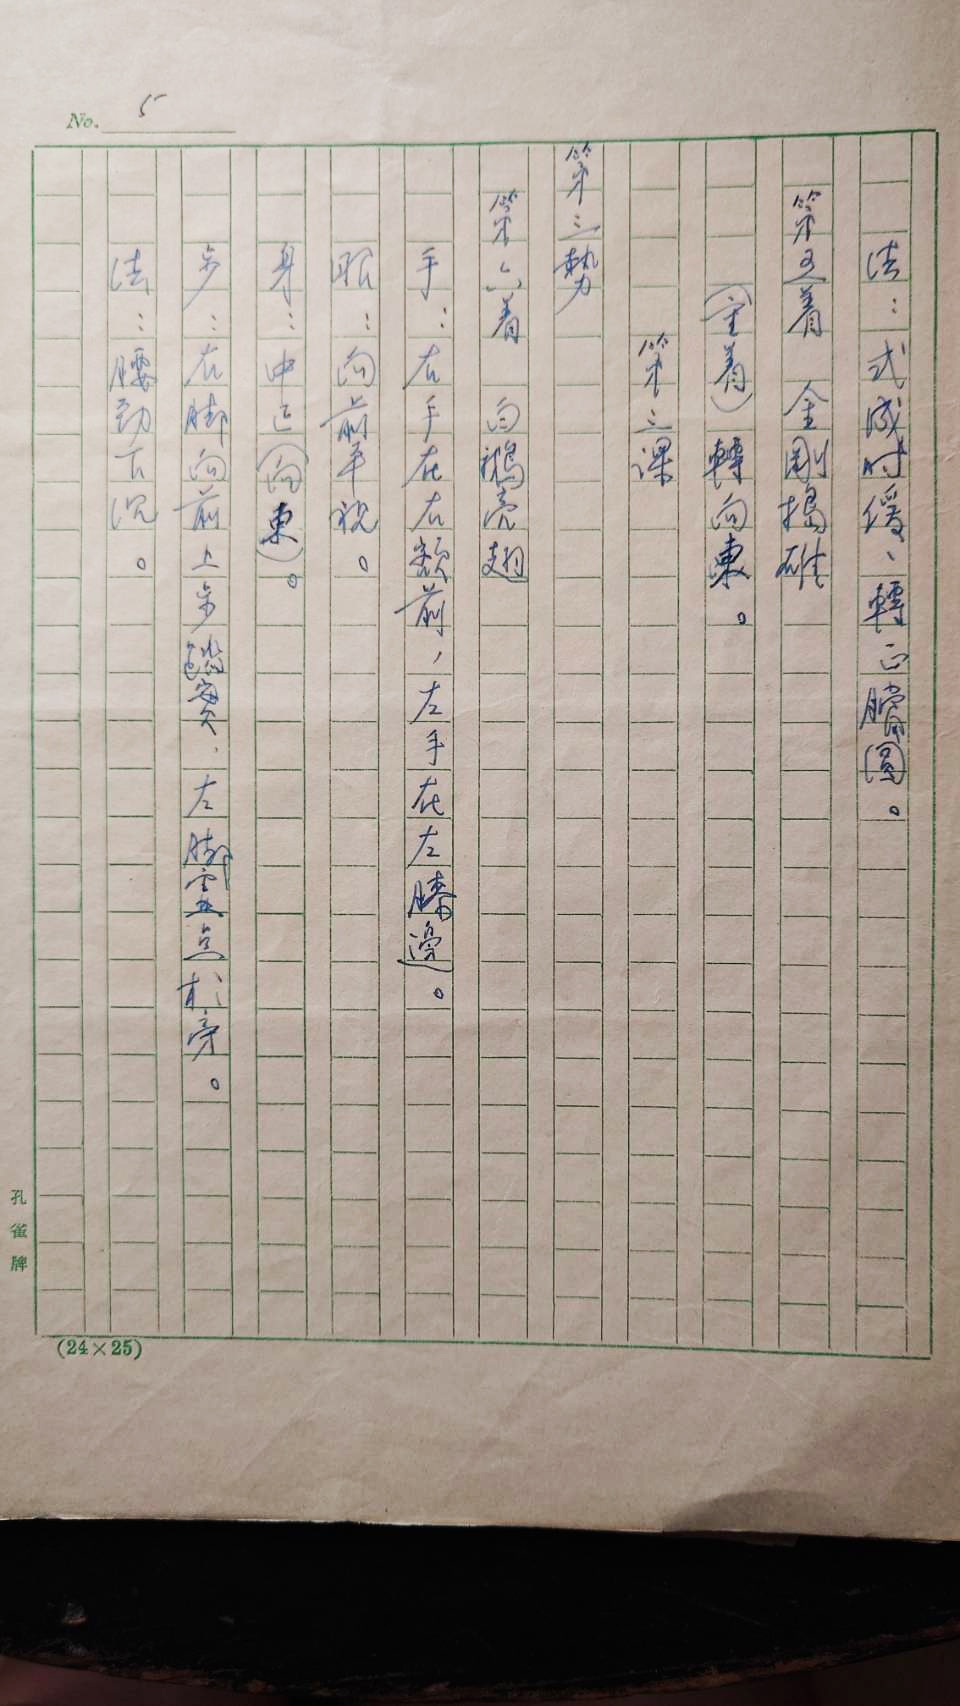 No. 5
法：式成时缓、轉正膽圓。
第五着　金剛搗碓
（全着）轉向東。
第三課
第三勢
第六着　白鵝亮翅
手：右手在右額前，左手在左膝邊。
眼：向前平視。
身：中正（向東）。
步：右脚向前上步踏實，左脚虛点於旁。
法：腰勁下沉。
孔雀牌
(24×25)